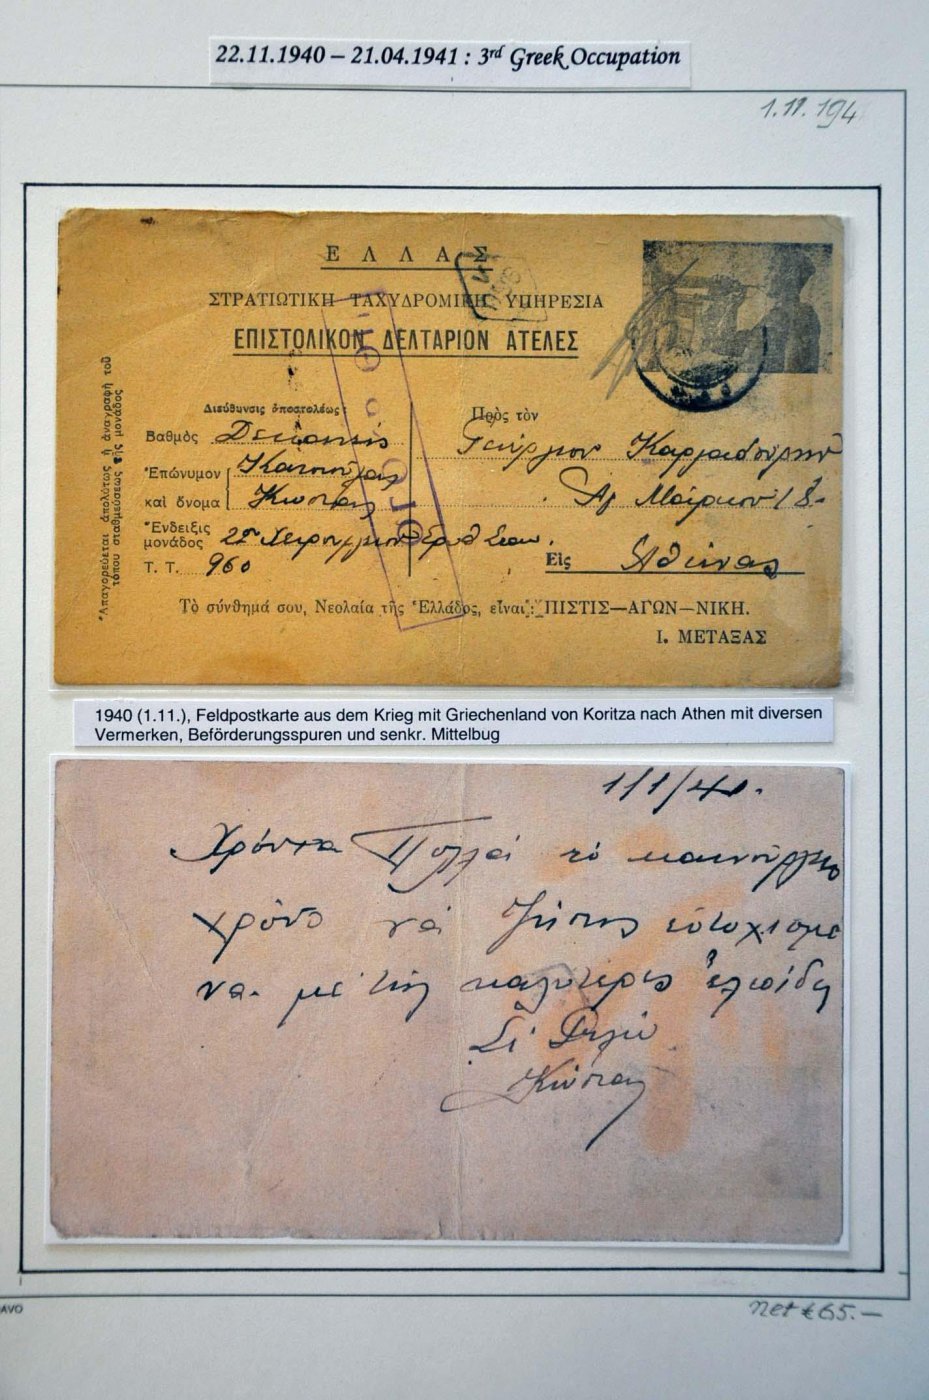 22.11.1940 – 21.04.1941 : 3rd Greek Occupation
1.11.194
ΕΛΛΑΣ
ΣΤΡΑΤΙΩΤΙΚΗ ΤΑΧΥΔΡΟΜΙΚΗ ΥΠΗΡΕΣΙΑ
ΕΠΙΣΤΟΛΙΚΟΝ ΔΕΛΤΑΡΙΟΝ ΑΤΕΛΕΣ
Ἀπαγορεύεται ἀπολύτως ἡ ἀναγραφὴ τοῦ
τόπου σταθμεύσεως τῆς μονάδος
Διεύθυνσις ἀποστολέως:
Βαθμὸς Δεκανεὺς
Ἐπώνυμον
καὶ ὄνομα Κώστας
Ἔνδειξις
μονάδος 2ον Χειρουργεῖον
Τ. Τ. 960
Πρὸς τὸν
Γεώργιον
Αγ Μάρκου 18
Εἰς Ἀθήνας
Τὸ σύνθημά σου, Νεολαία τῆς Ἑλλάδος, εἶναι: ΠΙΣΤΙΣ—ΑΓΩΝ—ΝΙΚΗ.
Ι. ΜΕΤΑΞΑΣ
1940 (1.11.), Feldpostkarte aus dem Krieg mit Griechenland von Koritza nach Athen mit diversen
Vermerken, Beförderungsspuren und senkr. Mittelbug
1/1/41.
Χρόνια Πολλά τό καινούργιο
χρόνο νά ζήσης εὐτυχισμέ
να. μέ τίς καλύτερες ἐλπίδες
Σέ Φιλῶ
Κώστας
AVO
net € 65.—